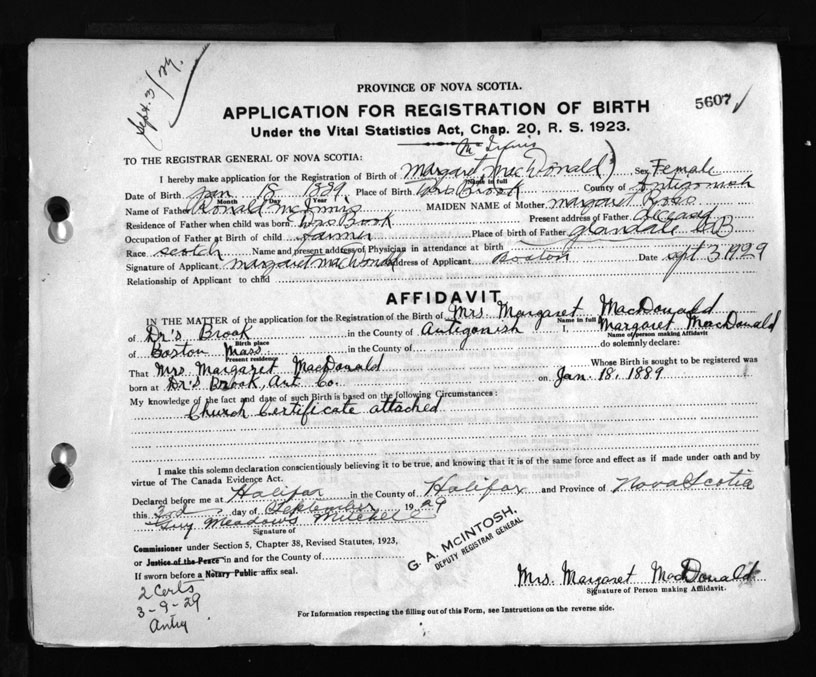 Sept. 3/29.
PROVINCE OF NOVA SCOTIA.
5607
APPLICATION FOR REGISTRATION OF BIRTH
Under the Vital Statistics Act, Chap. 20, R. S. 1923.
TO THE REGISTRAR GENERAL OF NOVA SCOTIA:
I hereby make application for the Registration of Birth of Margaret MacDonald) Sex Female
Name in full
Date of Birth Jan 18 1889 Place of Birth Drs Brook County of Antigonish
Month Day Year
Name of Father Ronald McInnis MAIDEN NAME of Mother Margaret Ross
Residence of Father when child was born Drs Brook Present address of Father
Occupation of Father at Birth of child Farmer Place of birth of Father Glendale CB
Race Scotch Name and present address of Physician in attendance at birth
Signature of Applicant Margaret MacDonald Address of Applicant Boston Date Sept 3, 1929
Relationship of Applicant to child
AFFIDAVIT
IN THE MATTER of the application for the Registration of the Birth of Mrs. Margaret MacDonald
Name in full
of Dr's Brook in the County of Antigonish I, Margaret MacDonald
Birth place Name of person making Affidavit
of Boston Mass in the County of do solemnly declare:
Present residence
That Mrs Margaret MacDonald Whose Birth is sought to be registered was
born at Dr's Brook, Ant. Co. on Jan. 18, 1889
My knowledge of the fact and date of such Birth is based on the following Circumstances:
Church Certificate attached
I make this solemn declaration conscientiously believing it to be true, and knowing that it is of the same force and effect as if made under oath and by
virtue of The Canada Evidence Act.
Declared before me at Halifax in the County of Halifax and Province of Nova Scotia
this 3rd day of September 1929
Guy Meadows Mitchel
Signature of
Commissioner under Section 5, Chapter 38, Revised Statutes, 1923,
or Justice of the Peace in and for the County of
If sworn before a Notary Public affix seal.
G. A. McINTOSH,
DEPUTY REGISTRAR GENERAL
Mrs. Margaret MacDonald
Signature of Person making Affidavit.
2 Certs
3-9-29
For Information respecting the filling out of this Form, see Instructions on the reverse side.